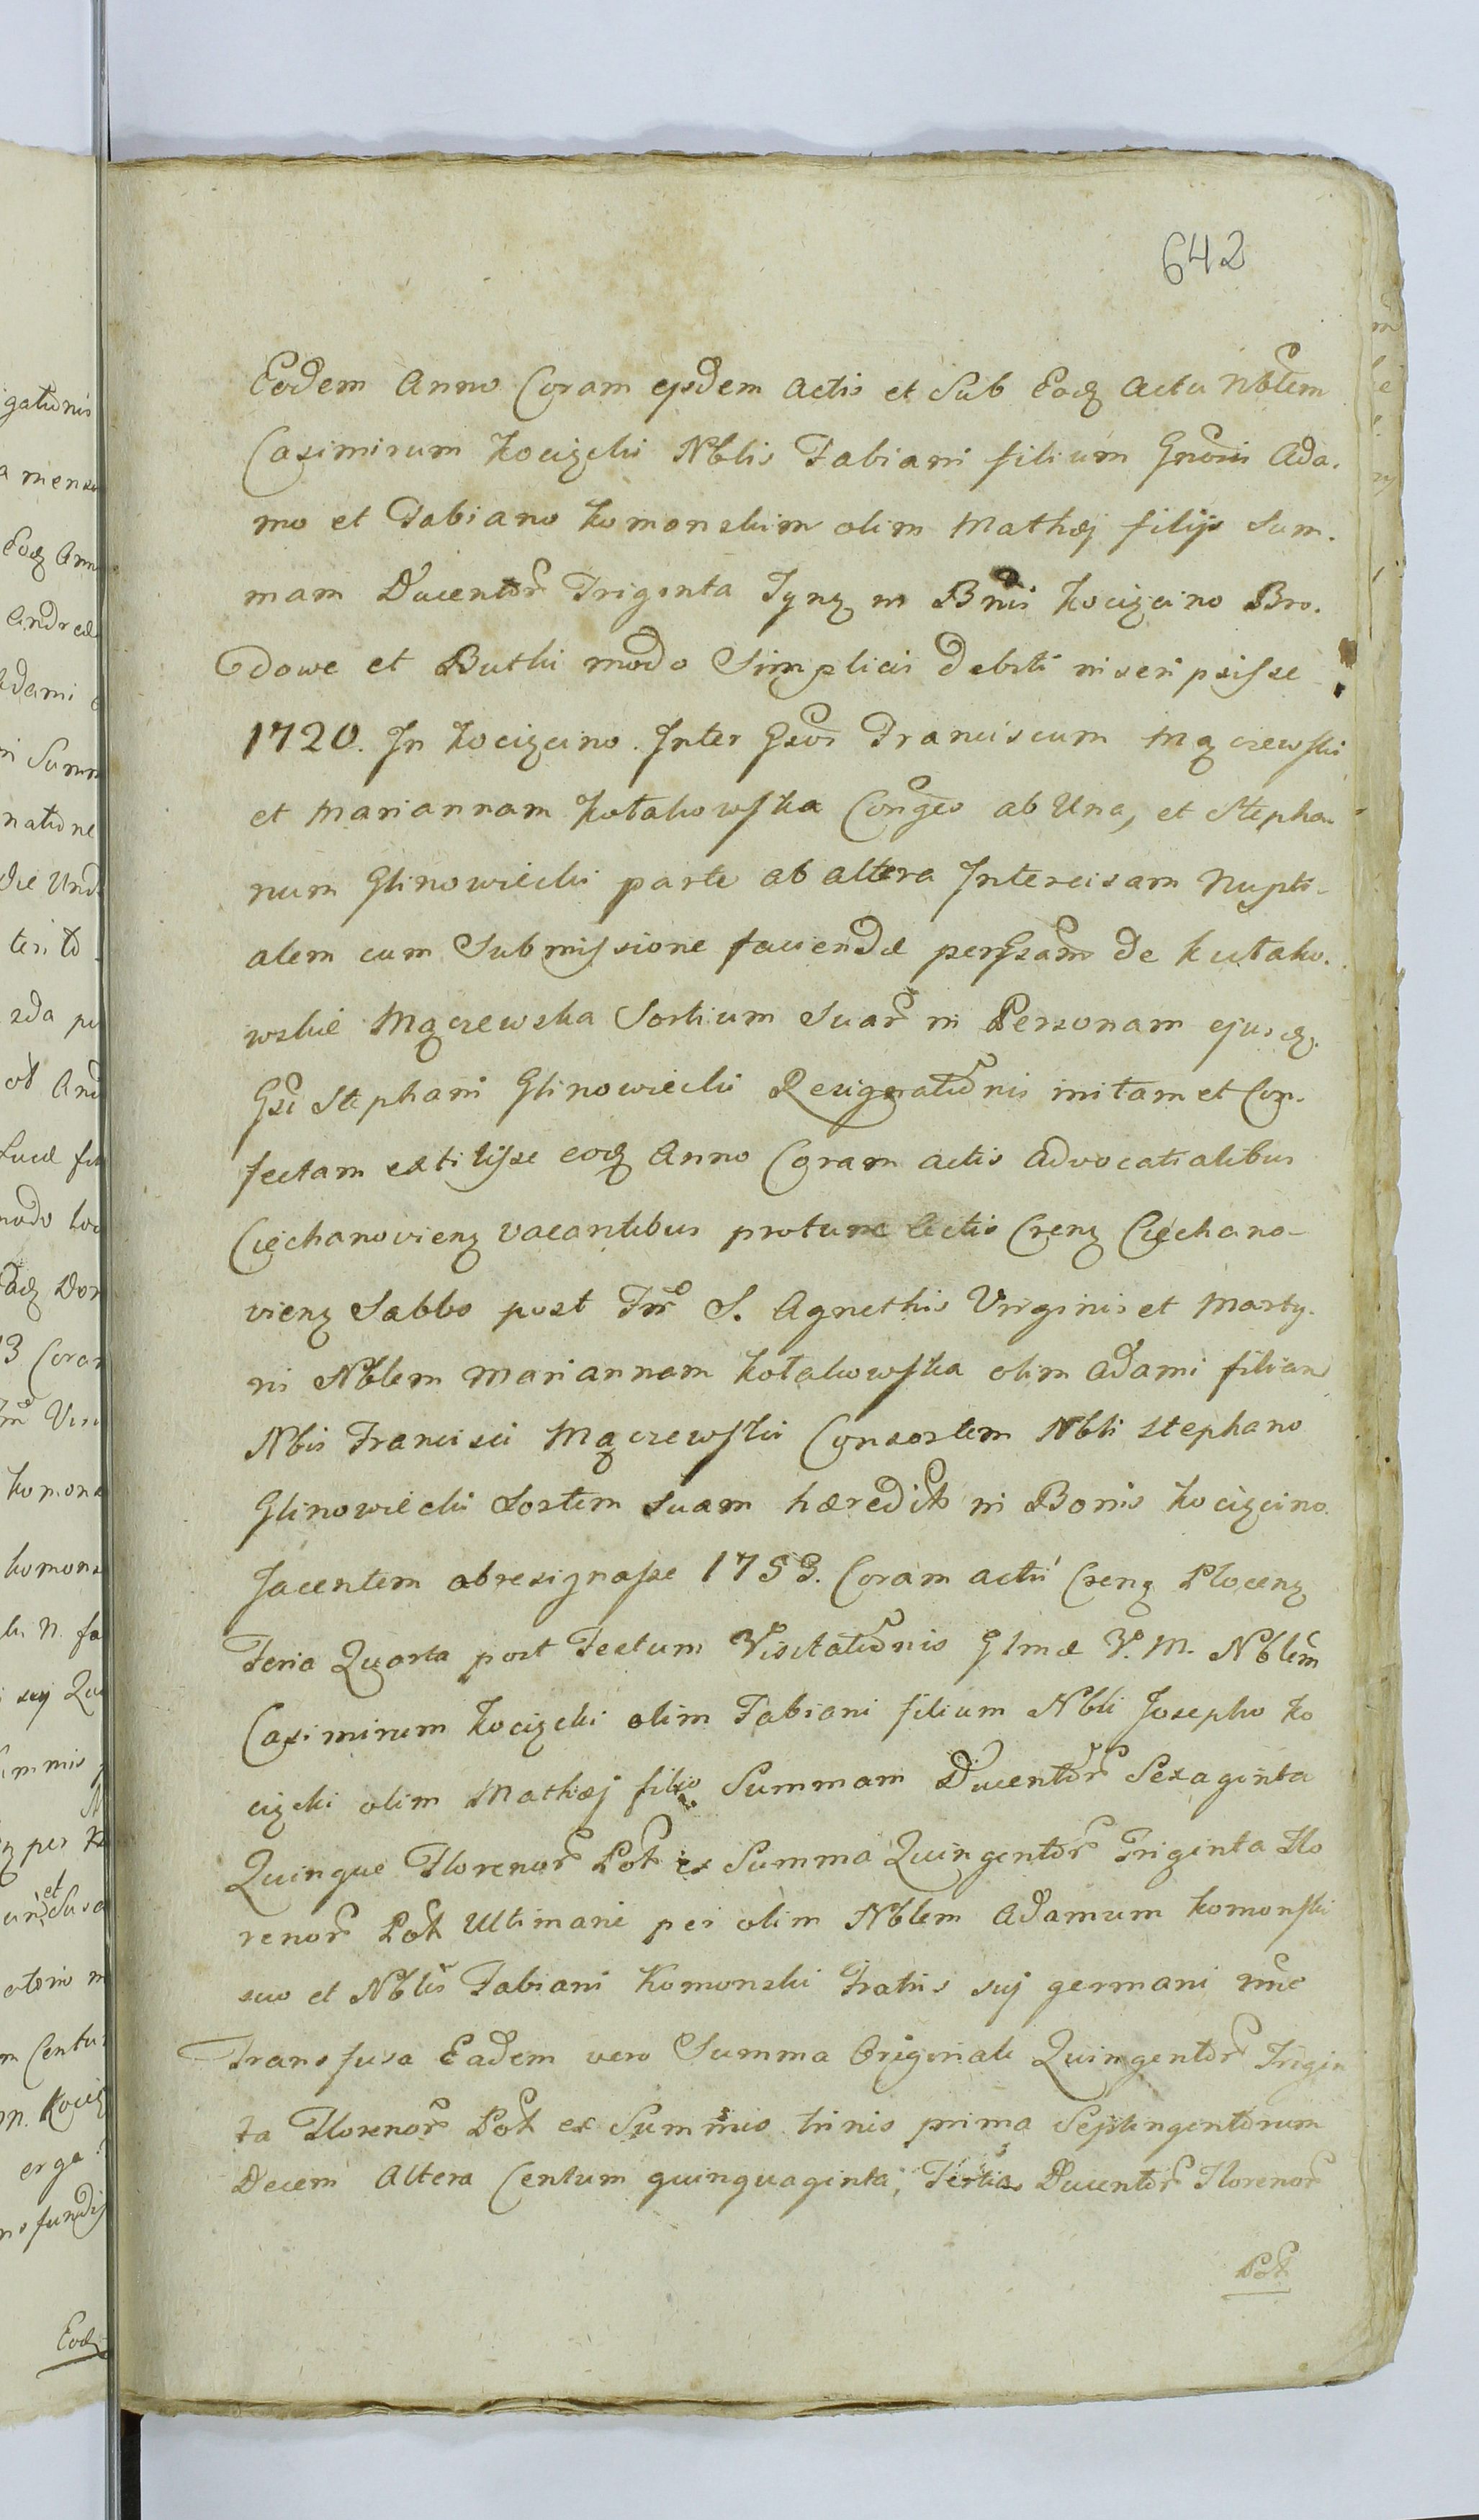 642
Eodem Anno Coram ejsdem actis et Sub Eodq actu Nblem
Casimirum Kocięcki Nblis Fabiani filium Gnosis Ada.
mo et Fabiano Komonskim olim Mathęj filijs Sum.
mam Ducentor Triginta Tynq in Bnis Kocięcino Bro.
dowe et Buthi modo Simplicis debiti inscripsisse
1720. In Kocięcino. Inter Gsos Franciscum Mączewski
et Mariannam Kołakowska Conges ab Una, et Stepha
num Glinowiecki parte ab altera Intercisam Nupti-
alem cum Submissione faciendæ per Gsam de Kułako.
wskie Mączewska Sortium Suar in Personam ejusdq.
Gsi Stephani Glinowiecki Resignationis initam et Con.
fectam extitisse eodq Anno Coram actis Advocatialibus
Ciechanovienq vacantibus protunc Actis Crenq Ciechano-
vienq Sabbo post Fm S. Agnethis Virginis et Marty.
ris Nblem Mariannam Kołakowska olim Adami filiam
Nbis Francisci Mączewski Consortem Nbli Stephano
Glinowiecki Sortem Suam hæredit in Bonis Kocięcino.
Jacentem abresignasse 1753. Coram actis Crenq Plocenq
Feria Quarta post Festum Visitationis Glmæ V. M. Nblem
Casimirum Kocięcki olim Fabiani filium Nbli Josepho Ko
cięcki olim Mathæj filio Summam Ducentor Sexaginta
Quinque Florenor Pol ex Summa Quingentor Triginta Flo
renor Pol Ultimarie per olim Nblem Adamum Komonski
suo et Nblis Fabiani Komonski Fratris suj germani nne
Transfusa Eadem vero Summa Originali Quingentor Trigin
ta Florenor Pol ex Summis trinis prima Septingentorum
Decem Altera Centum quinquaginta, Tertia Ducentor Florenor
Pol